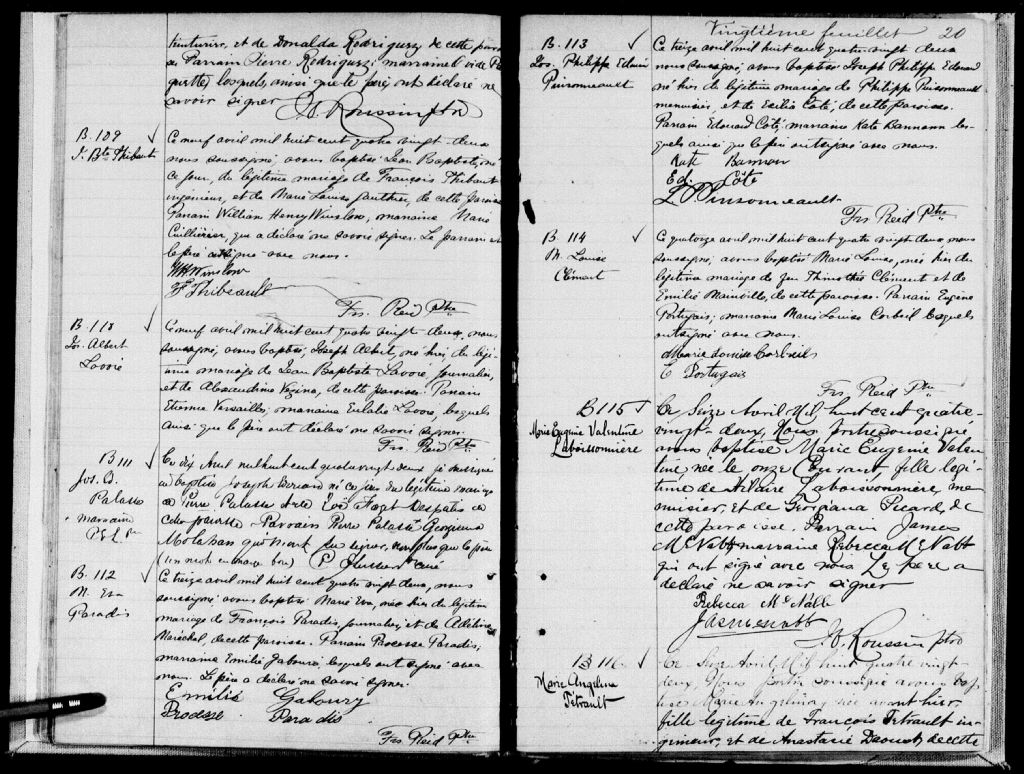 teinturier, et de Donalda Rodriguez de cette paroisse
Parrain Pierre Rodriguez; marraine
lesquels, ainsi que le père, ont déclaré ne
savoir signer
Roussin ptre
B. 109
J. Bte Thibault
Ce neuf avril mil huit cent quatre vingt-deux
nous soussigné, avons baptisé Jean Baptiste, né
ce jour, du légitime mariage de François Thibault
ingénieur, et de Marie Louise Gauthier, de cette paroisse
Parrain William Henry Winslow, marraine Marie
Cuillérier, qui a déclaré ne savoir signer. Le parrain et
le père ont signé avec nous.
WH Winslow
F Thibeault
Frs. Reid Ptre
B. 110
Jos. Albert
Lavoie
Ce neuf avril mil huit cent quatre vingt-deux, nous
soussigné, avons baptisé, Joseph Albert, né hier, du légi-
time mariage de Jean Baptiste Lavoie, journalier,
et de Alexandrine Vezina, de cette paroisse. Parrain
Etienne Versailles, marraine Eulalie Lavoie, lesquels
ainsi que le père ont déclaré ne savoir signer.
Frs. Reid Ptre
B 111
Jos. B.
Palasse
Ce dix Avril mil huit cent quatre vingt deux je soussigné
ai baptisé Joseph Bernard né ce jour du légitime mariage
de Pierre Palasse et de Zoé
cette paroisse - Parrain Pierre Palasse Georgiana
que le père
(un mot en marge bon)
curé
B. 112
M. Eva
Paradis
Ce treize avril mil huit cent quatre vingt deux, nous
soussigné, avons baptisé Marie Eva, née hier du légitime
mariage de François Paradis, journalier, et de Adeline
Maréchal, de cette paroisse. Parrain Processe Paradis,
marraine Emilie Jaboury, lesquels ont signé avec
nous. Le père a déclaré ne savoir signer.
Emilie Gaboury
Processe Paradis
Frs Reid Ptre
Vingtième feuillet 20
B. 113
Jos. Philippe Edouard
Pinsonneault
Ce treize avril mil huit cent quatre vingt deux
nous soussigné, avons baptisé Joseph Philippe Edouard
né hier de légitime mariage de Philippe Pinsonneault
menuisier, et de Exilia Coté, de cette paroisse.
Parrain Edouard Coté, marraine Kate Bannon les-
quels ainsi que le père ont signé avec nous.
Kate Bannon
Ed. Côte
Pinsonneault
Frs Reid Ptre
B. 114
M. Louise
Clément
Ce quatorze avril mil huit cent quatre vingt deux nous
soussigné, avons baptisé Marie Louise, née hier du
légitime mariage de Jean Thimothée Clément et de
Emilie Mainville, de cette paroisse. Parrain Eugène
Portugais; marraine Marie Louise Corbeil lesquels
ont signé avec nous
Marie Louise Corbeil
E Portugais
Frs Reid Ptre
B 115
Marie Eugénie Valentine
Laboissonnière
Ce Seize Avril Mil huit cent quatre-
vingt-deux, Nous prêtre soussigné
avons baptisé Marie Eugénie Valen
tine, née le onze Courant, fille légi-
time de Hilaire Laboissonnière, me
nuisier, et de Georgiana Picard, de
cette paroisse. Parrain James
McNabb marraine Rebecca McNabb
qui ont signé avec nous Le père a
déclaré ne savoir signer
Rebecca McNabb
Jas McNabb
Roussin ptre
B 116
Marie Angelina
Tétrault
Ce Seize Avril, Mil huit quatre vingt-
deux, Nous prêtre soussigné avons bap
tisée Marie Angelina, née avant hier,
fille légitime de François Tétrault in
génieur, et de Anastasie Daoust, de cette